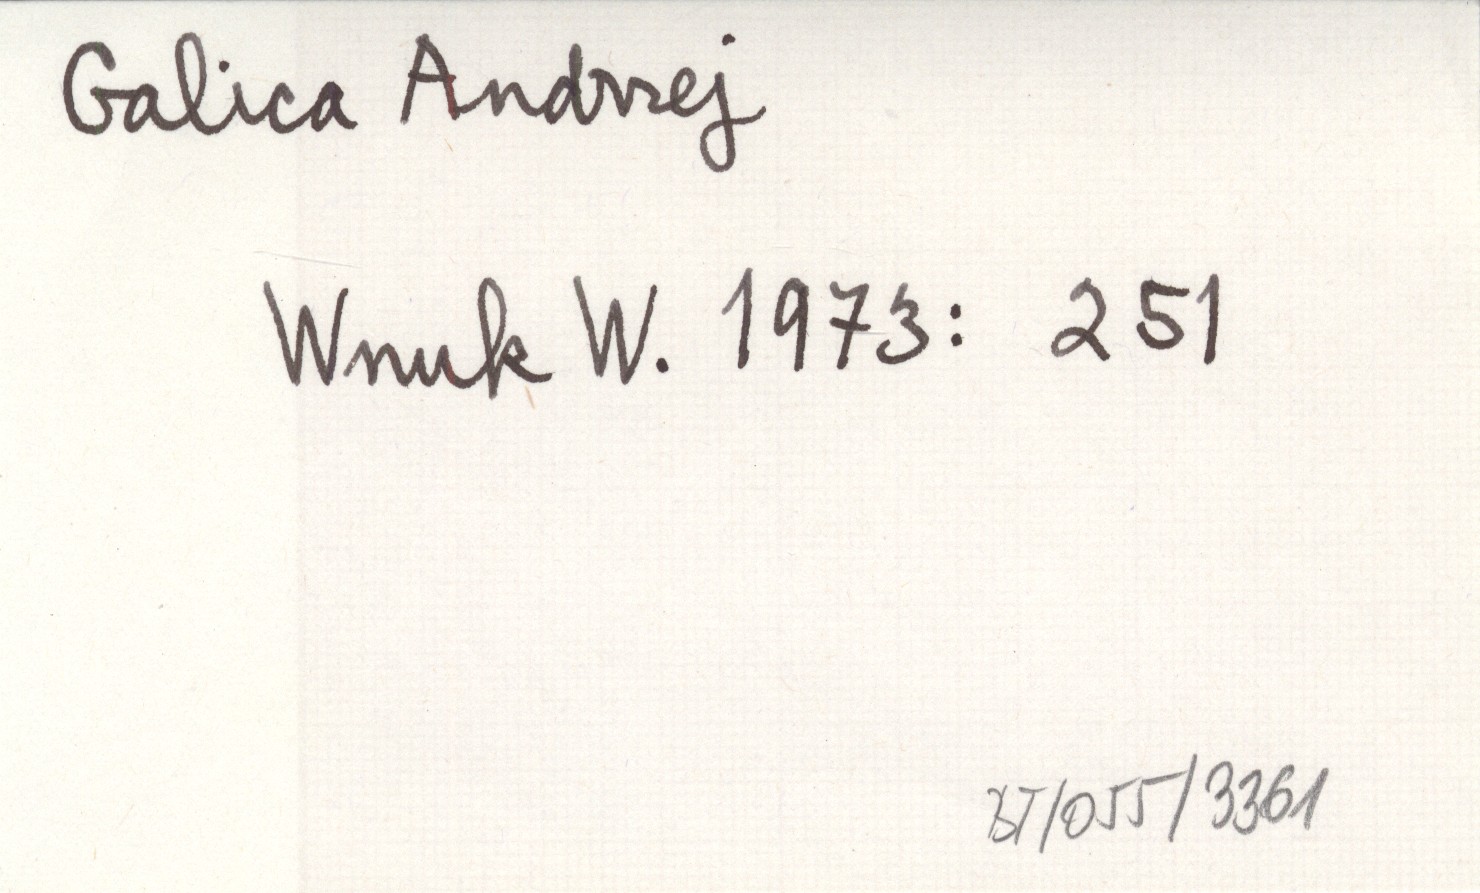 Galica Andrzej
Wnuk W. 1973: 251
BT/055/3361